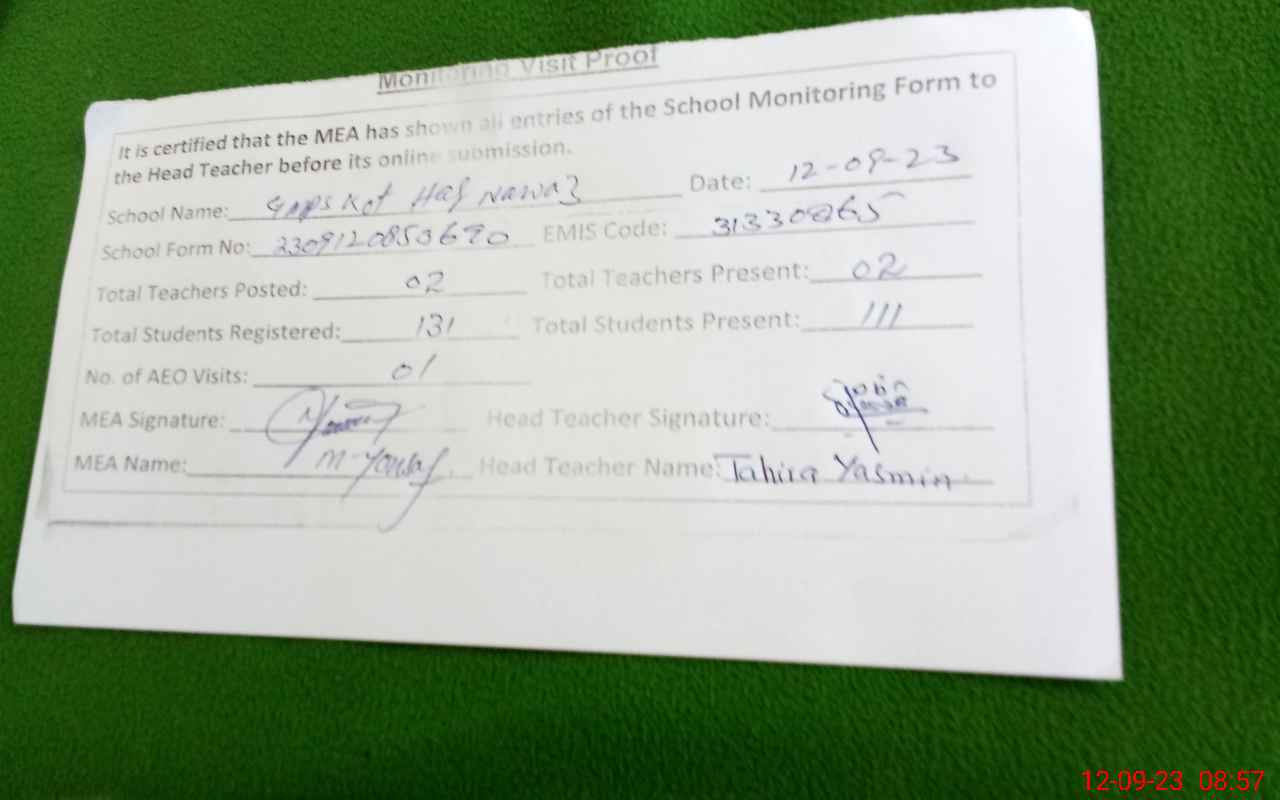 Monitoring Visit Proof
It is certified that the MEA has shown all entries of the School Monitoring Form to
the Head Teacher before its online submission.
School Name: GMPS Kot Haq Nawaz Date: 12-09-23
School Form No: 2309120853690 EMIS Code: 31330265
Total Teachers Posted: 02 Total Teachers Present: 02
Total Students Registered: 131 Total Students Present: 111
No. of AEO Visits: 01
MEA Signature: Head Teacher Signature:
MEA Name: M-Yousaf Head Teacher Name: Tahira Yasmin
12-09-23 08:57